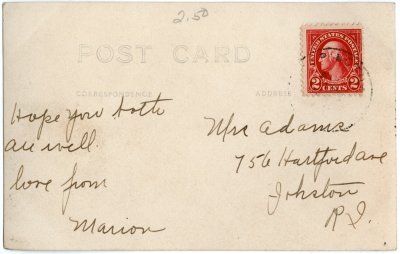 2.50
POST CARD
UNITED STATES POSTAGE
2 CENTS 2
CORRESPONDENCE
ADDRESS
Hope you both
are well.
love from
Marion
Mrs Adams
756 Hartford ave
Johston
R.I.